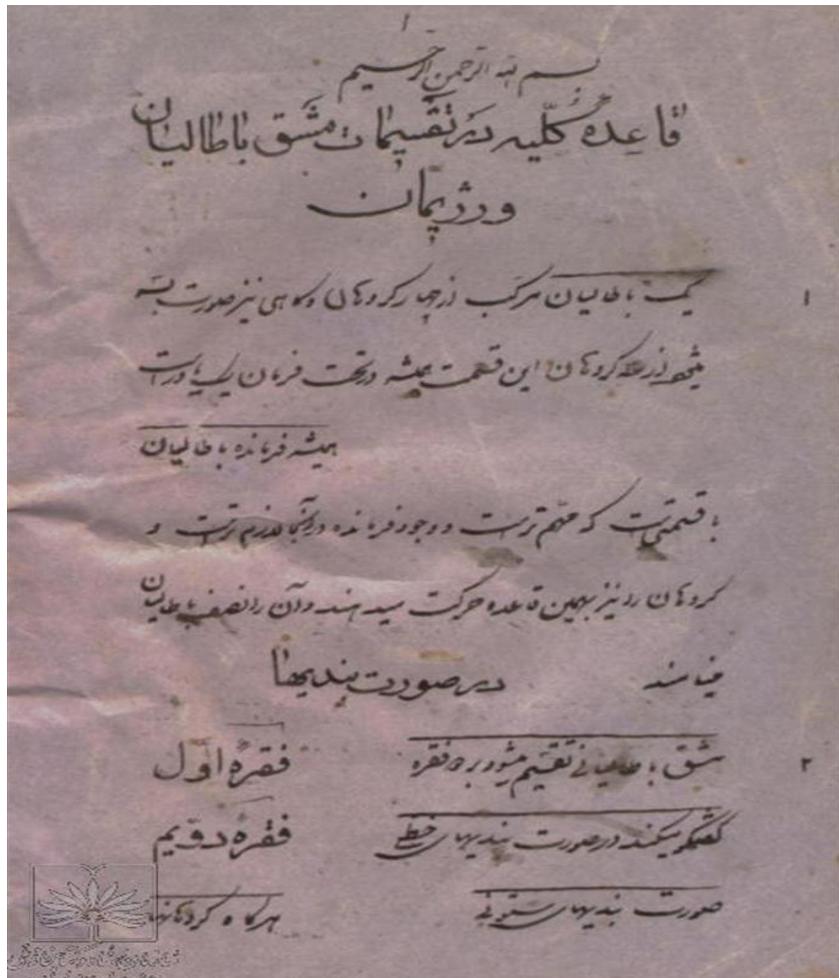 ۱
بسم الله الرحمن الرحیم
قاعده کلیه در تقسیمات مشق باطالیان
و رژیمان
۱ یک باطالیان مرکب از چهار کروهان و کاهی نیز صورت بسته
میشود از سه کروهان این قسمت همیشه در تحت فرمان یک یاور است
همیشه فرمانده باطالیان
با قسمتی است که مهم تر است و وجود فرمانده در آنجا لازم تر است و
کروهان را نیز بهمین قاعده حرکت میدهند و آن را نصف باطالیان
مینامند در صورت بندیها
۲ مشق باطالیانی تقسیم میشود بر فقره فقرهٔ اول
گفتگو میکند در صورت بندیهای خطی فقرهٔ دویم
صورت بندیهای ستونی هرکاه کروهانها